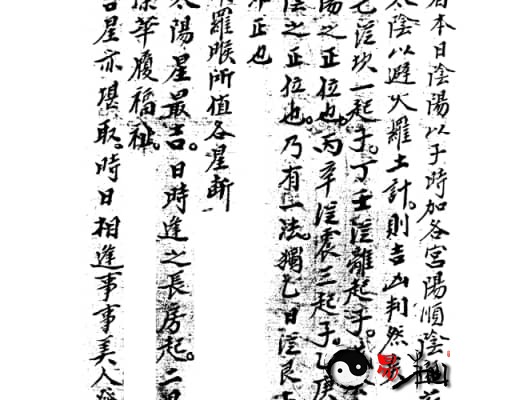 本日陰陽以子時加各宮陽順陰
太陰以避火羅土計。則吉凶判然
從坎一起子。丁壬從離起子。
陽之正位也。丙辛從震三起子。乙庚
陰之正位也。乃有一法。獨乙日從艮
正也
羅睺所值各星斷
太陽星最吉。日時逢之長房起。二
華履福祉。
吉星亦堪取。時日相逢事事美人